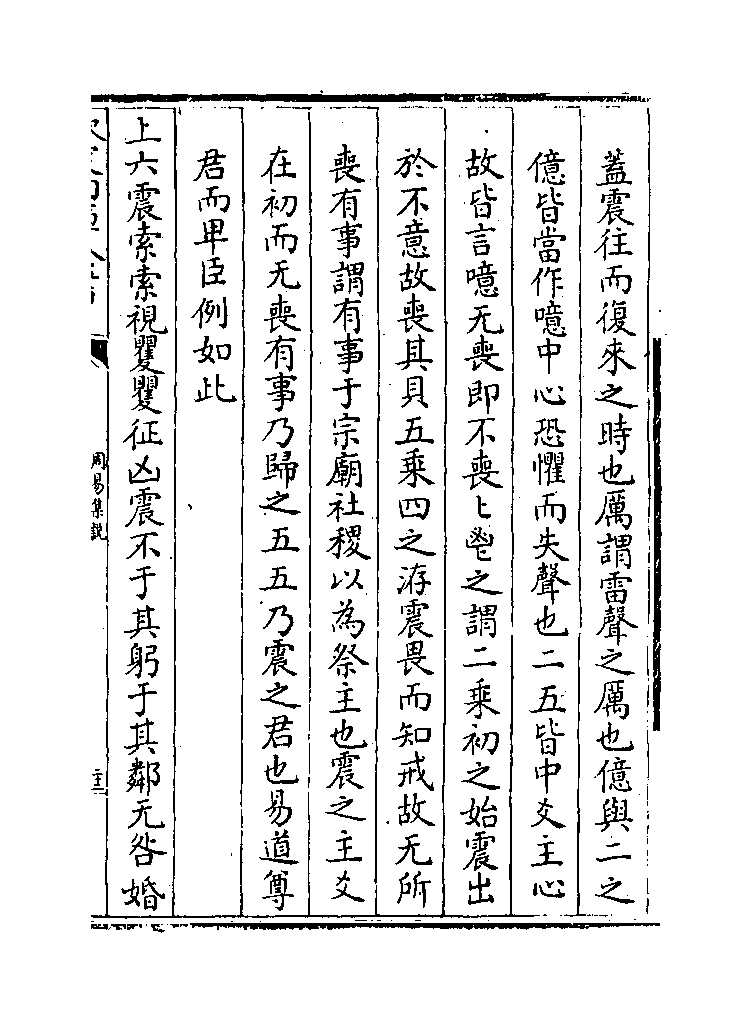 蓋震往而復來之時也厲謂雷聲之厲也億與二之
億皆當作噫中心恐懼而失聲也二五皆中爻主心
故皆言噫无喪即不喪匕鬯之謂二乘初之始震出
於不意故喪其貝五乘四之洊震畏而知戒故无所
喪有事謂有事于宗廟社稷以為祭主也震之主爻
在初而无喪有事乃歸之五五乃震之君也易道尊
君而卑臣例如此
上六震索索視矍矍征凶震不于其躬于其鄰无咎婚
周易集說